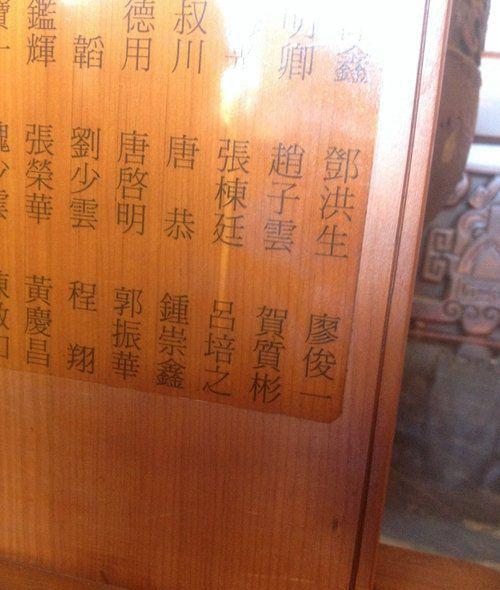 鑫 鄧洪生 廖俊一
明卿 趙子雲 賀質彬
張棟廷 呂培之
叔川 唐恭 鍾崇鑫
德用 唐啓明 郭振華
韜 劉少雲 程翔
鑑輝 張榮華 黃慶昌
少雲